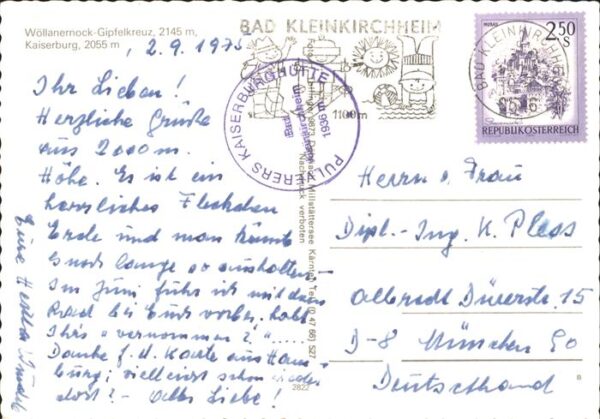 Wöllanernock-Gipfelkreuz, 2145 m,
Kaiserburg, 2055 m
2.9.1975
Ihr Lieben!
Herzliche Grüße
aus 2000 m.
Höhe. Es ist ein
herrliches Fleckchen
Erde und man könnte
noch lange so aushalten.
Im Juni fuhr ich mit dem
Rad bei Euch vorbei, habt
Ihr's "vernommen?"
Danke f. d. Karte aus Ham
burg; vielleicht schon wieder
dort? - Alles Liebe!
Eure
BAD KLEINKIRCHHEIM
1100m
PULVERERS KAISERBURGHÜTTE
1936 m
Nachdruck verboten
2822
2.50
S
REPUBLIK ÖSTERREICH
BAD KLEINKIRCHHEIM
Herrn u. Frau
Dipl.-Ing. K. Pless
Albrecht Dürerstr. 15
D-8 München 90
Deutschland